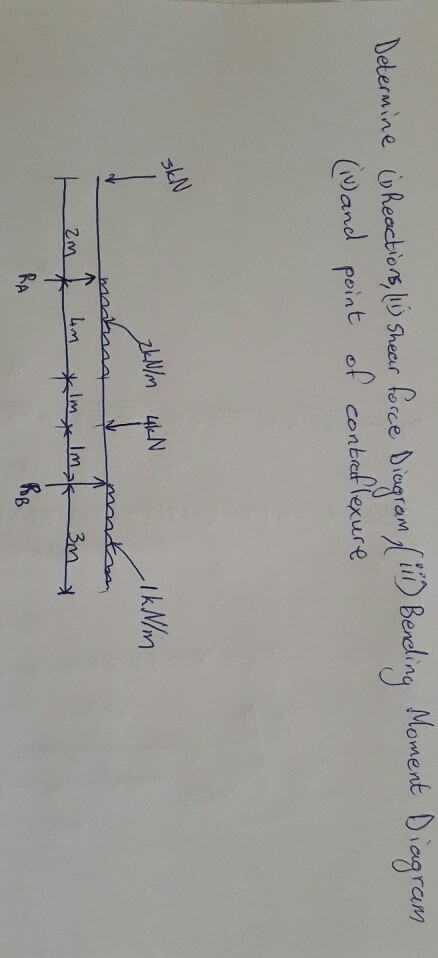 Determine (i) Reactions, (ii) Shear force Diagram, (iii) Bending Moment Diagram
(iv) and point of contraflexure
3kN
2kN/m
4kN
1kN/m
2m
4m
1m
1m
3m
RA
RB